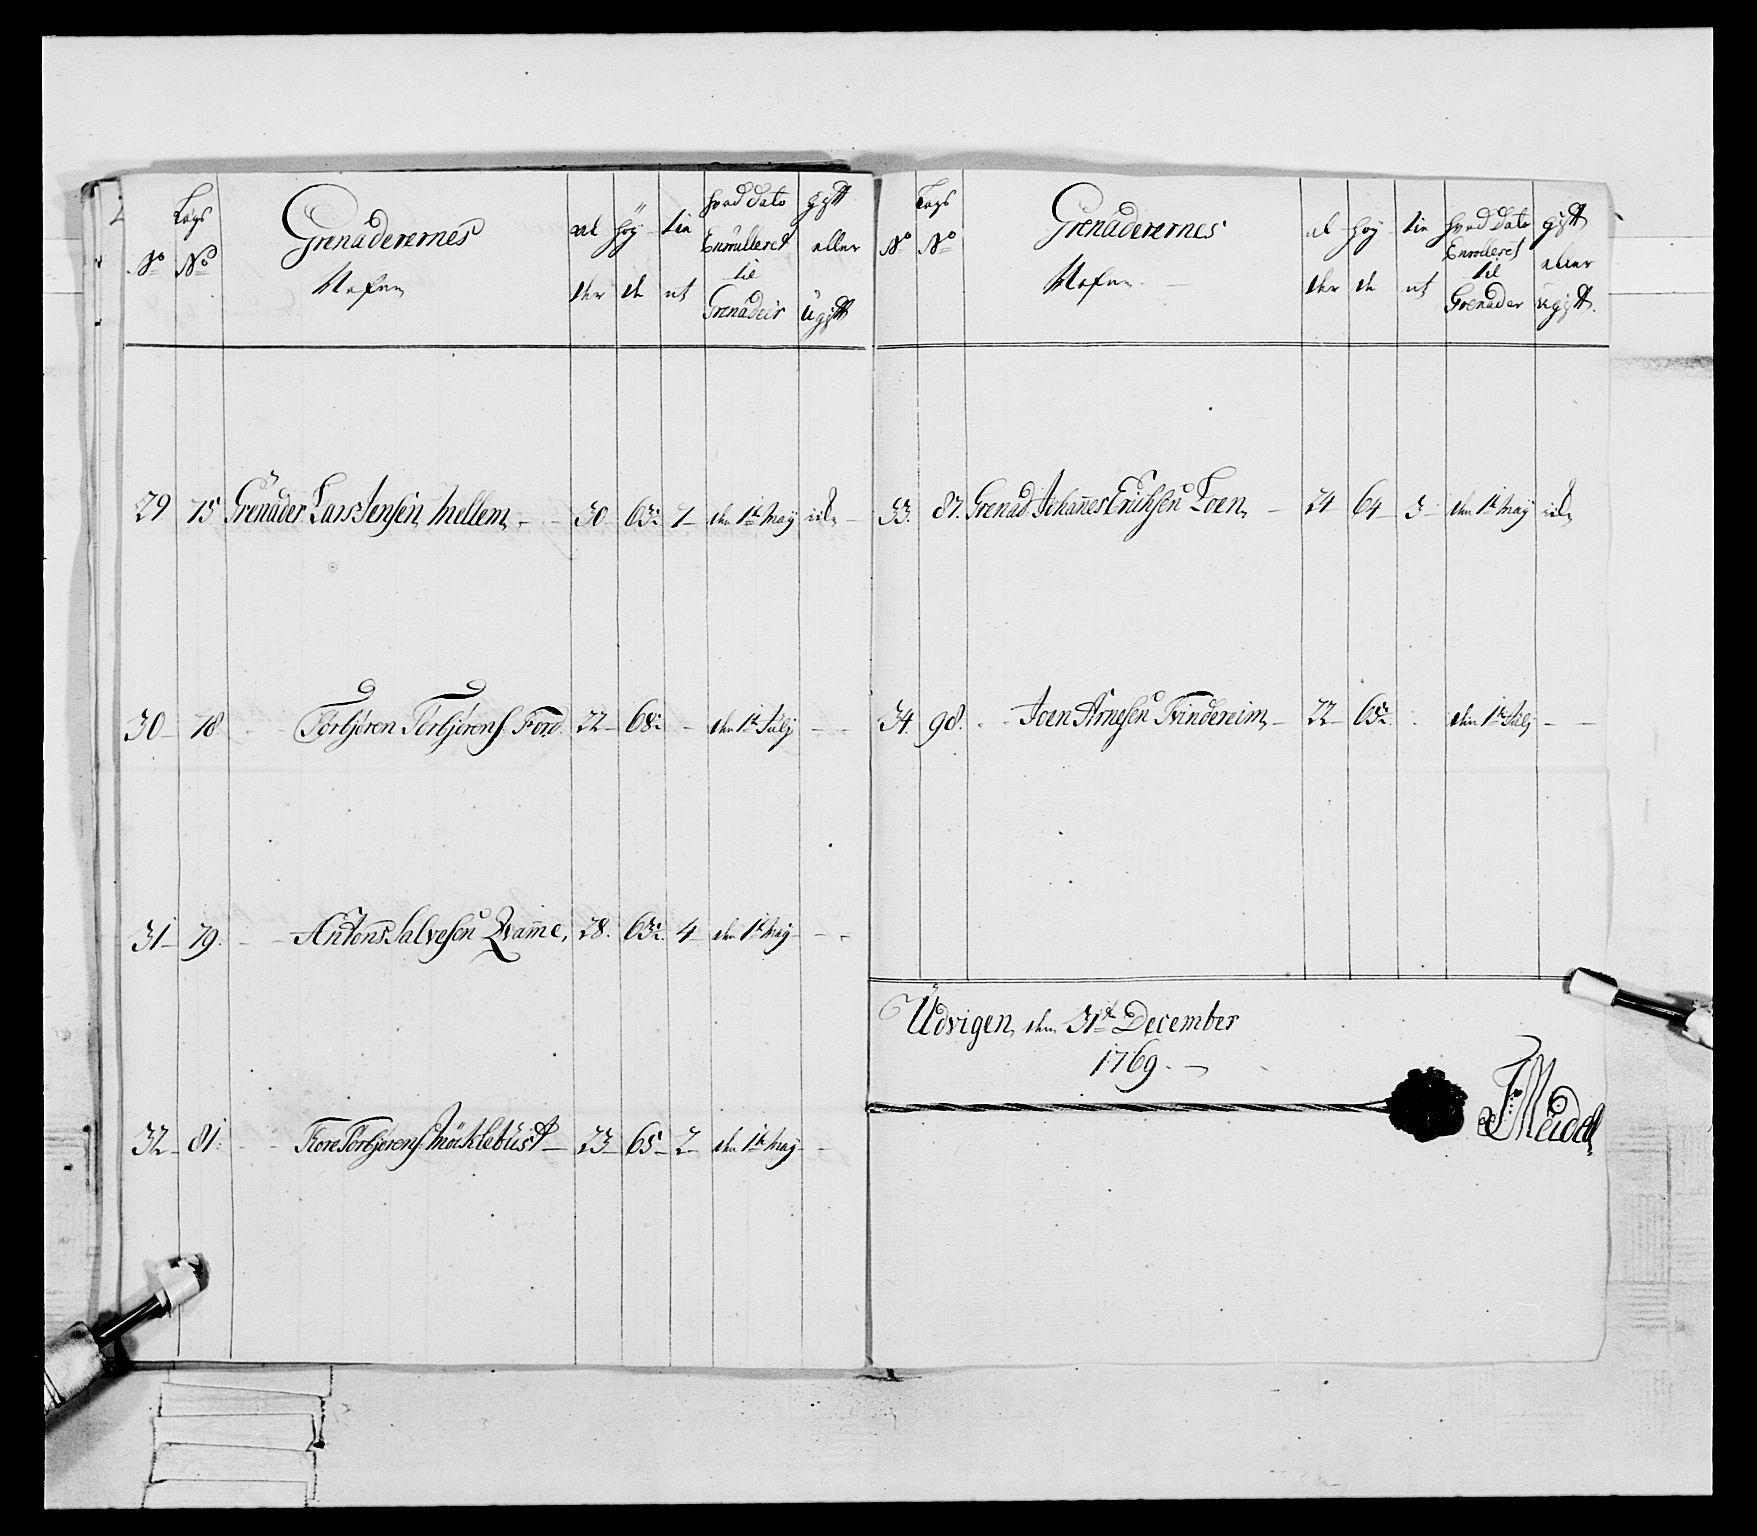 No Lægs No Grenaderernes Nafne al der Høy de tie nt hvad dato Enrulleret til Grenadeir gift eller ugift
29 75 Grenader Lars Jensen Mellem 30 63½ 1 den 1te May
30 78 Torbjøren Torbjørens. Ford. 22 68½ den 1te Julij
31 79. Anton Salvesen Qvam̄e, 28. 63½ 4 den 1te Maij
32 81. Tore Torbjørens. Möklebüst 23 65 2 den 1te Maij
No Lægs No Grenaderernes Nafne al der Høy de tie nt hvad dato Enrolleret til Grenader gift eller ugift.
33. 87. Grenad. Johan̄es Erichsen Loen 24 64 3 den 1te May
34. 98. Joen Arnesen Tvindereim 22 65½ den 1te Julij
Udvigen den 31te December
1769.